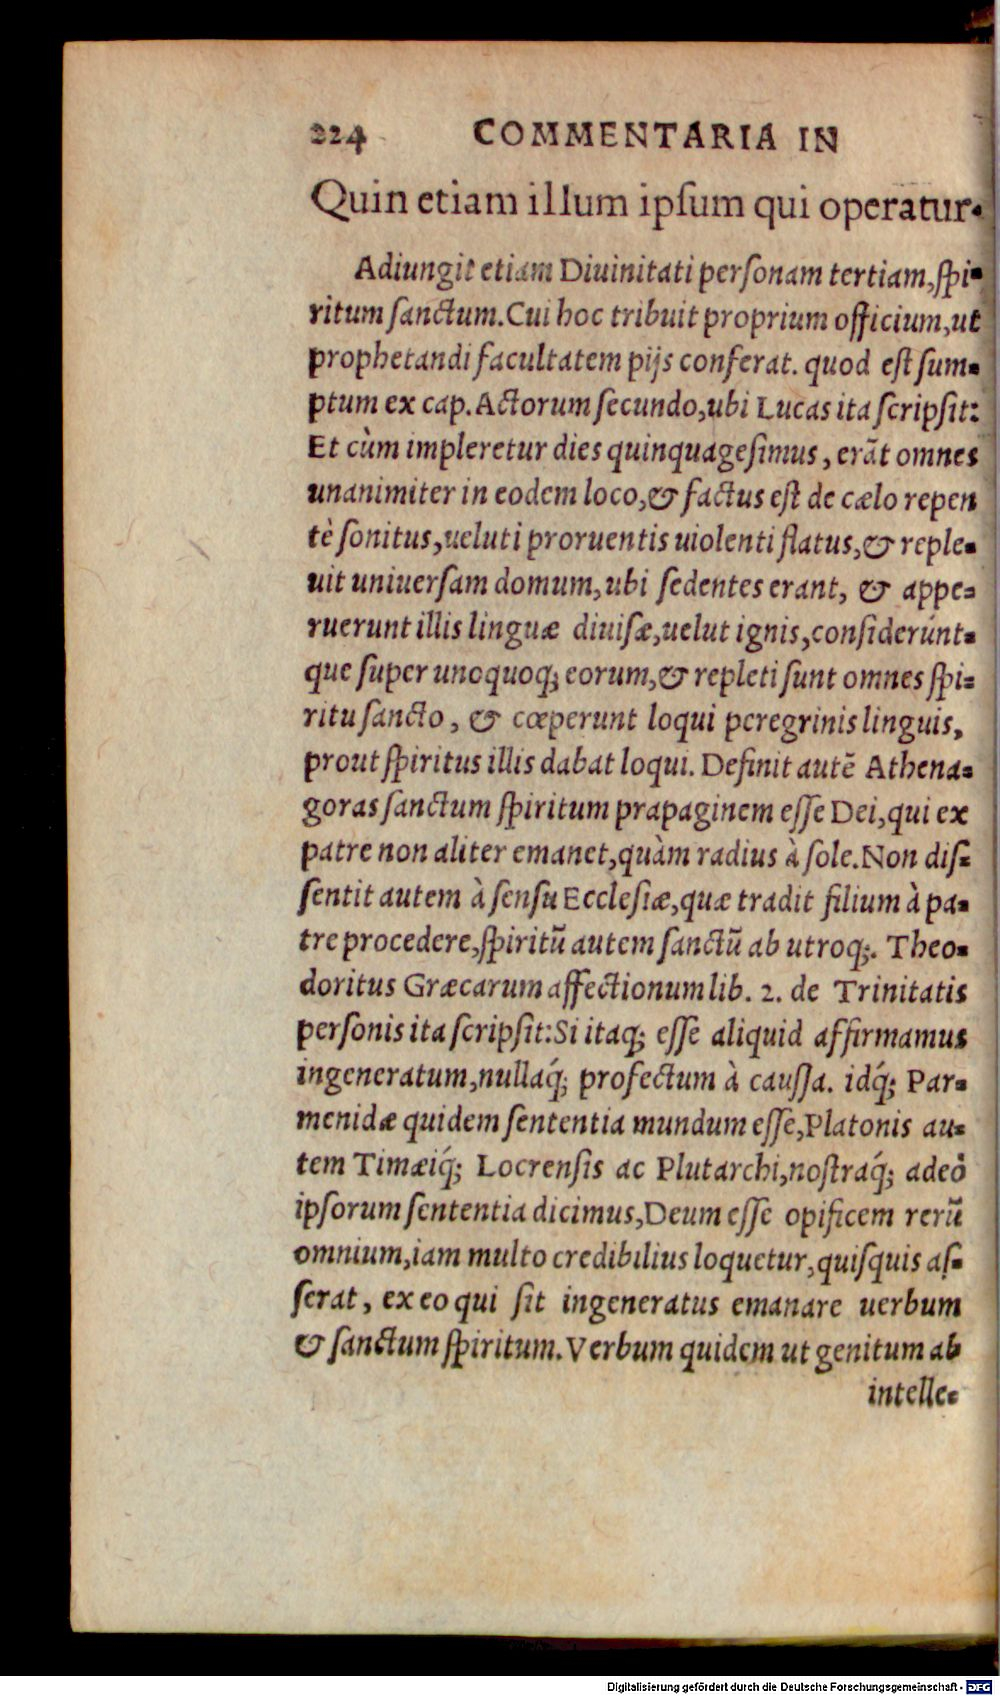 224 COMMENTARIA IN
Quin etiam illum ipſum qui operatur.
Adiungit etiam Diuinitati perſonam tertiam,ſpi-
ritum ſanctum.Cui hoc tribuit proprium officium,ut
prophetandi facultatem pijs conferat. quod eſt ſum-
ptum ex cap.Actorum ſecundo,ubi Lucas ita ſcripſit:
Et cùm impleretur dies quinquageſimus, erãt omnes
unanimiter in eodem loco,& factus eſt de cælo repen
tè ſonitus,ueluti proruentis uiolenti flatus,& reple-
uit uniuerſam domum,ubi ſedentes erant, & appe-
ruerunt illis linguæ diuiſæ,uelut ignis,conſiderúnt-
que ſuper unoquoq; eorum,& repleti ſunt omnes ſpi-
ritu ſancto, & cœperunt loqui peregrinis linguis,
prout ſpiritus illis dabat loqui. Definit autẽ Athena-
goras ſanctum ſpiritum prapaginem eſſe Dei,qui ex
patre non aliter emanet,quàm radius à ſole.Non diſ-
ſentit autem à ſenſu Eccleſiæ,quæ tradit filium à pa-
tre procedere,ſpiritũ autem ſanctũ ab utroq;. Theo-
doritus Græcarum affectionum lib. 2. de Trinitatis
perſonis ita ſcripſit:Si itaq; eſſe aliquid affirmamus
ingeneratum,nullaq́; profectum à cauſſa. idq́; Par-
menidæ quidem ſententia mundum eſſe,Platonis au-
tem Timæiq́; Locrenſis ac Plutarchi,noſtraq́; adeò
ipſorum ſententia dicimus,Deum eſſe opificem rerũ
omnium,iam multo credibilius loquetur,quiſquis aſ-
ſerat, ex eo qui ſit ingeneratus emanare uerbum
& ſanctum ſpiritum.Verbum quidem ut genitum ab
intelle-
Digitalisierung gefördert durch die Deutsche Forschungsgemeinschaft - DFG